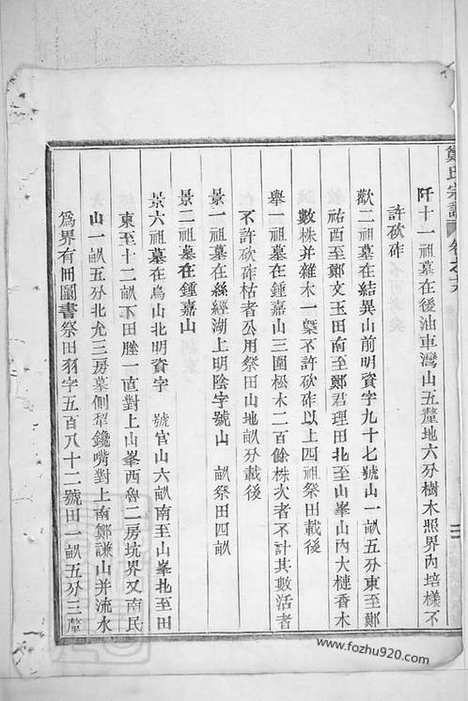 鄭氏宗譜 卷之六
阡十一祖墓在後油車灣山五釐地六分樹木照界內培樣不
許砍砟
歡二祖墓在結異山前明資字九十七號山一畝五分東至鄭
祐西至鄭文玉田南至鄭君理田北至山峯山內大槤香木
數株并雜木一藁不許砍砟以上四祖祭田載後
舉一祖墓在鍾嘉山三圍松木二百餘株欠者不計其數活者
不許砍砟枯者公用祭田山地畝分載後
景一祖墓在絲經湖上明陰字號山 畝祭田四畝
景二祖墓在鍾嘉山
景六祖墓在烏山北明資字 號官山六畝南至山峯北至田
東至十二畝下田塍一直對上山峯西魯二房坑界又南民
山一畝五分北尤三房墓側犁鑱嘴對上南鄭謙山并流水
為界有冊圖書祭田羽字五百八十二號田一畝五分三釐
www.fozhu920.com